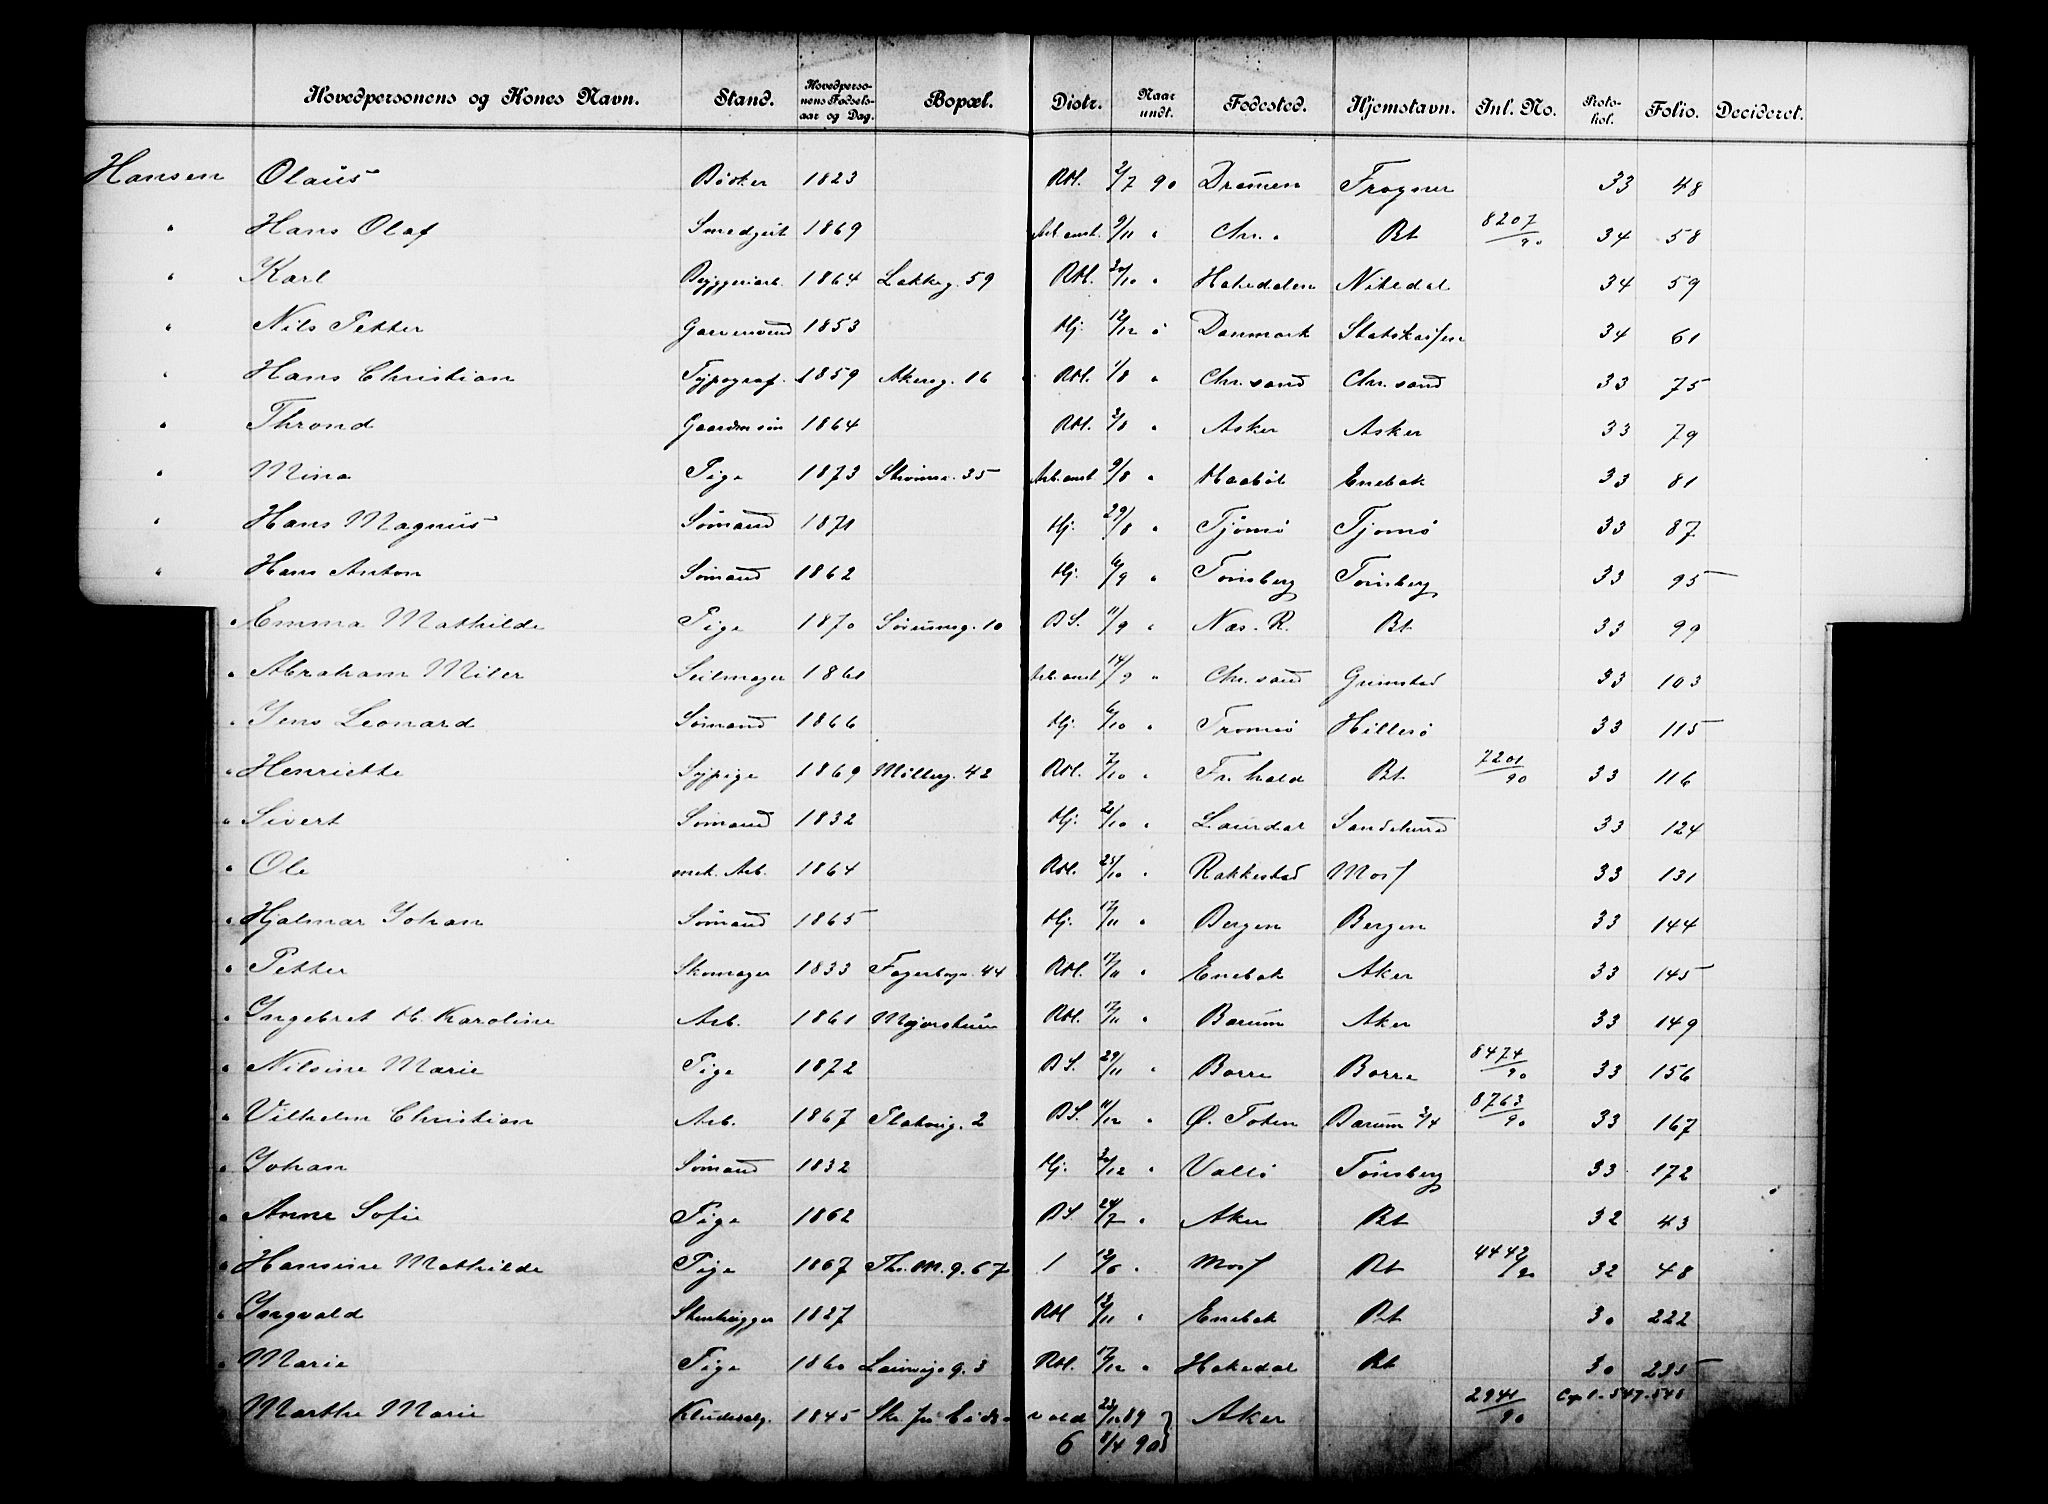 Hovedpersonens og Kones Navn. Stand. Hovedperso-nens Fødsels-aar og Dag. Bopæl. Distr. Naar undt. Fødested. Hjemstavn. Inl. No. Proto-kol. Folio. Decideret.
Hansen Olaus Bødker 1823 RH. 2/7 90 Dramen Frogner 33 48
" Hans Olaf Smedgut 1869 Arb.anst. 9/11 " Chr.a Bt 8207/90 34 58
" Karl Bryggeriarb. 1864 Lakkeg. 59 RH. 30/10 " Hakedalen Nitedal 34 59
" Nils Petter Garversvend 1853 Hj. 12/12 " Danmark Statskassen 34 61
" Hans Christian Typograf. 1859 Akersg. 16 RH. 1/8 " Chr.sand Chr.sand 33 75
" Thrond Gaardmssøn 1864 RH. 2/8 " Asker Asker 33 79
" Mina Pige 1873 Strømsv. 35 Arb.anst. 9/8 " Haabøl Enebak 33 81
" Hans Magnus Sømand 1871 Hj. 29/8 " Tjømø Tjomø 33 87
" Hans Anton Sømand 1862 Hj. 6/9 " Tønsberg Tønsberg 33 95
" Emma Mathilde Pige 1870 Sørumsg. 10 BS. 11/9 " Næs. R. Bt 33 99
" Abraham Miler Seilmager 1861 Arb.anst 14/9 " Chr.sand Grimstad 33 103
" Jens Leonard Sømand 1866 Hj. 6/10 " Tromsø Hillesø 33 115
" Henriette Sypige 1869 Møllerg. 42 RH. 7/10 " Fr.hald Bt 7201/90 33 116
" Sivert Sømand 1832 Hj. 21/10 " Laurdal Sandeherred 33 124
" Ole mek. Arb. 1864 RH. 25/10 " Rakkestad Moss 33 131
" Hjalmar Johan Sømand 1865 Hj. 17/11 " Bergen Bergen 33 144
" Petter Skomager 1833 Fagerborgv. 44 RH. 17/11 " Enebak Aker 33 145
" Ingebret H. Karoline Arb. 1861 Majorstuen RH. 17/11 " Barum Aker 33 149
" Nilsine Marie Pige 1872 BS. 29/11 " Borre Borre 8474/90 33 156
" Vilhelm Christian Arb. 1867 Platoug. 2 BS. 11/12 " Ø. Toten Barum 3/4 8763/90 33 167
" Johan Sømand 1832 Hj. 20/12 " Vallø Tønsberg 33 172
" Anne Sofie Pige 1862 BS. 24/7 " Aker Bt 32 43
" Hansine Mathilde Pige 1867 Th.M.g. 67 1 12/6 " Moss Bt 4442/90 32 48
" Ingvald Stenhugger 1827 RH 13/11 " Enebak Bt 30 222
" Marie Pige 1860 Laurvigsg. 3 RH. 17/12 " Hakedal Bt 30 235
Marthe Marie Kludeselg. 1845 89 Aker 2941/90 547. 548
6 8/4 90